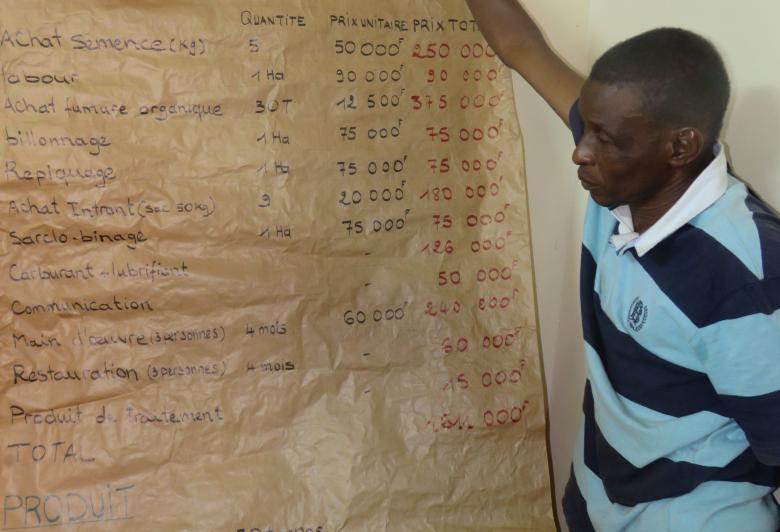 QUANTITE PRIX UNITAIRE PRIX TOT
Achat Semence (kg) 5 50 000F 250 000
labour 1 Ha 90 000F 90 000F
Achat fumure organique 30T 12 500F 375 000F
billonnage 1 Ha 75 000F 75 000F
Repiquage 1 Ha 75 000F 75 000F
Achat Intrant (sac 50kg) 9 20 000F 180 000F
Sarclo-binage 1 Ha 75 000F 75 000F
Carburant + lubrifiant - 126 000F
Communication - 50 000F
Main d'oeuvre (3 personnes) 4 mois 60 000F 240 000F
Restauration (3 personnes) 4 mois - 60 000F
Produit de traitement - 15 000F
TOTAL 1611 000F
PRODUIT